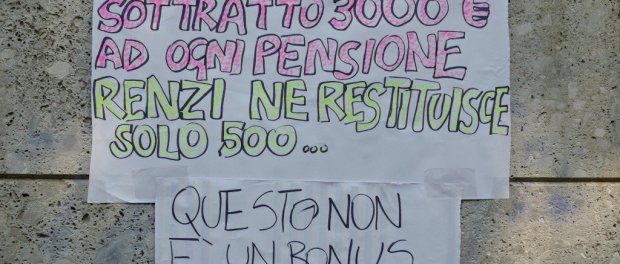 SOTTRATTO 3000 €
AD OGNI PENSIONE
RENZI NE RESTITUISCE
SOLO 500...
QUESTO NON
È UN BONUS